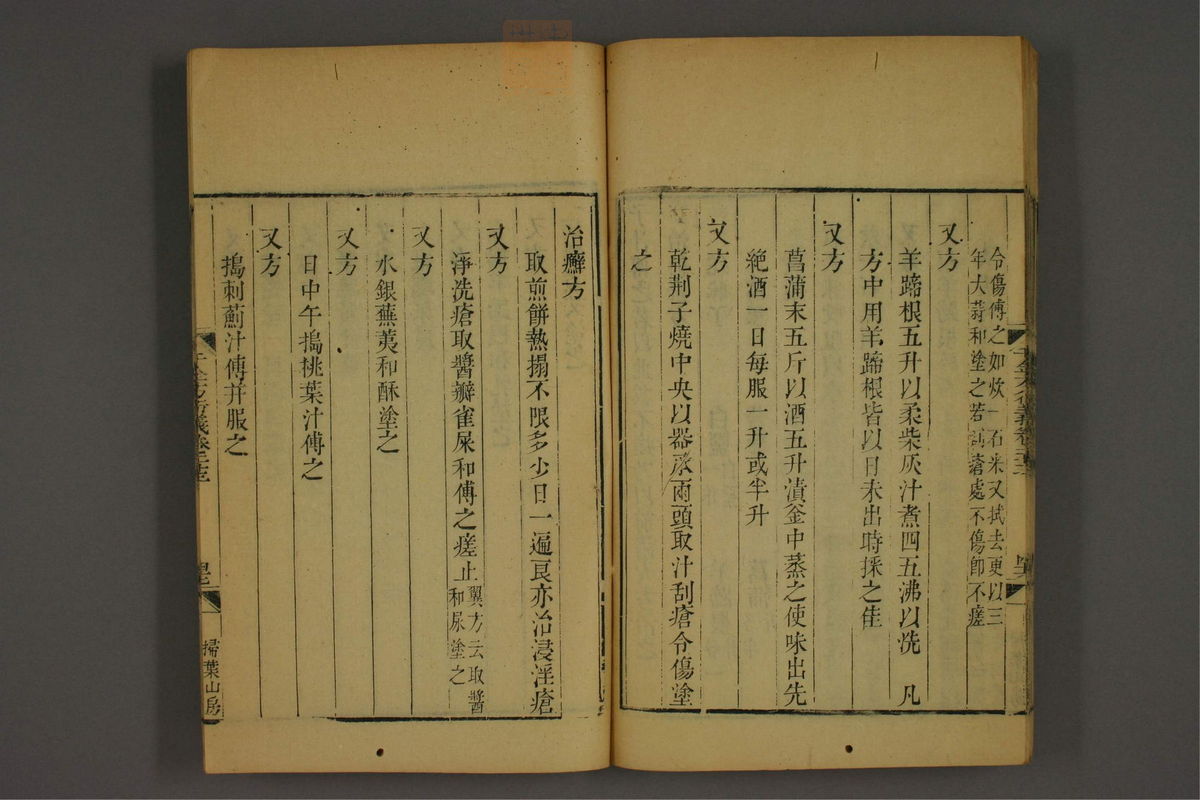 令傷傅之如炊一石米又拭去更以三
年大蒜和塗之若試瘡處不傷卽不瘥
又方
羊蹄根五升以柔柴灰汁煮四五沸以洗　凡
方中用羊蹄根皆以日未出時採之佳
又方
菖蒲末五斤以酒五升漬釜中蒸之使味出先
絶酒一日每服一升或半升
又方
乾荆子燒中央以器承兩頭取汁刮瘡令傷塗
之
治癬方
取煎餅熱搨不限多少日一遍良亦治浸淫瘡
又方
淨洗瘡取醬瓣雀屎和傅之瘥止
翼方云取醬
和尿塗之
又方
水銀蕪荑和酥塗之
又方
日中午搗桃葉汁傅之
又方
搗刺薊汁傅并服之
千金方衍義卷
掃葉山房